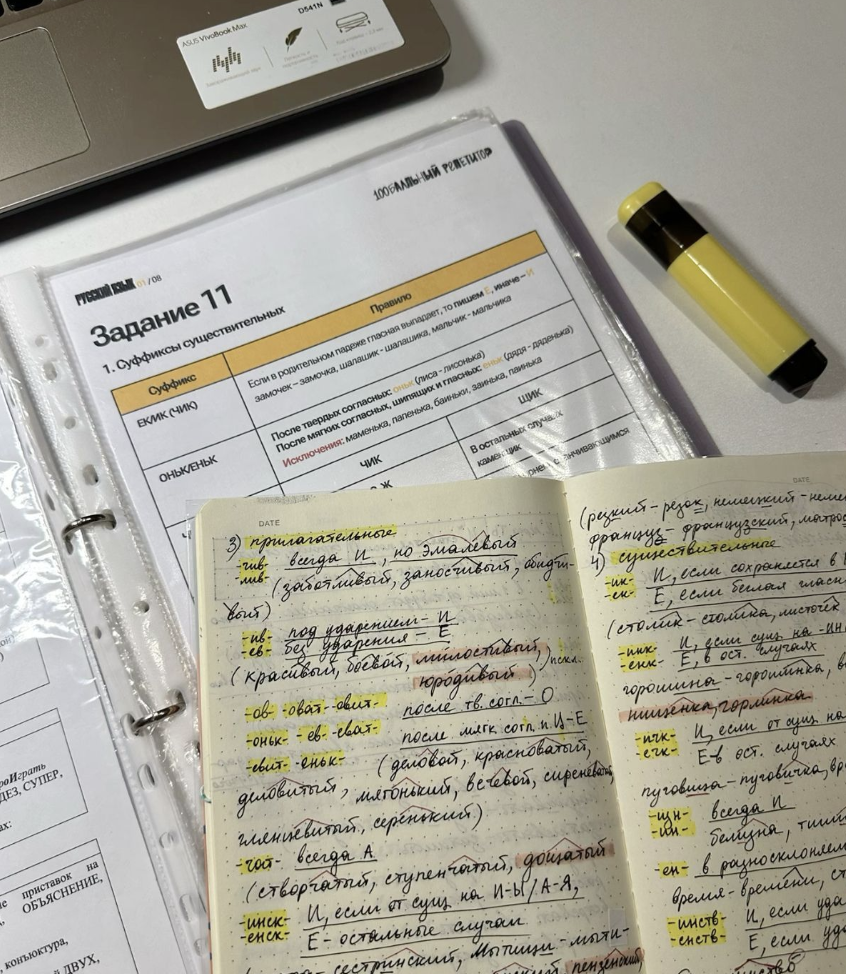 ASUS VivoBook Max
D541N
100БАЛЛЬНЫЙ РЕПЕТИТОР
РУССКИЙ ЯЗЫК 01 / 08
Задание 11
1. Суффиксы существительных
Суффикс
Правило
ЕК/ИК (ЧИК)
Если в родительном падеже гласная выпадает, то пишем Е, иначе – И
замочек – замочка, шалашик - шалашика, мальчик - мальчика
ОНЬК/ЕНЬК
После твердых согласных: оньк (лиса - лисонька)
После мягких согласных, шипящих и гласных: еньк (дядя - дяденька)
Исключения: маменька, папенька, баиньки, заинька, паинька
ЧИК
ЩИК
В остальных случаях
каменщик
роИграть
ДЕЗ, СУПЕР,
приставок на
ОБЪЯСНЕНИЕ,
конъюктура,
ДВУХ,
DATE
3) прилагательные
-чив-
-лив-
всегда И, но Эмалевый
(заботливый, заносчивый, обидчи-
вый)
-ив-
-ев-
под ударением - И
без ударения - Е
(красивый, боевой, милостивый,
юродивый)
-ов- -оват- -овит-
после тв. согл. - О
-оньк- -ев- -еват-
после мягк. согл. и Ц - Е
-евит- -еньк-
(деловой, красноватый,
деловитый, мягонький, вещевой, сиреневый
глянцевитый, серенький)
-чат- всегда А
(створчатый, ступенчатый, дощатый
-инск-
-енск-
И, если от сущ на И-Ы/А-Я,
Е - остальные случаи
сестринский, Мытищи - мыти-
пензенский,
DATE
(резкий - резок, немецкий -
француз - французский,
4) существительные
-ик-
-ек-
И, если сохраняется в
Е, если беглая
(столик - столика, листочек
-инк-
-енк-
И, если сущ на -ИН
Е, в ост. случаях
горошина - горошинка,
нищенка, горлинка
-ичк-
-ечк-
И, если от сущ на
Е - в ост. случаях
пуговица - пуговичка,
всегда И
-ен- в разносклоняем
время - времени,
-инств-
-енств-
И, если уда
Е, если уда